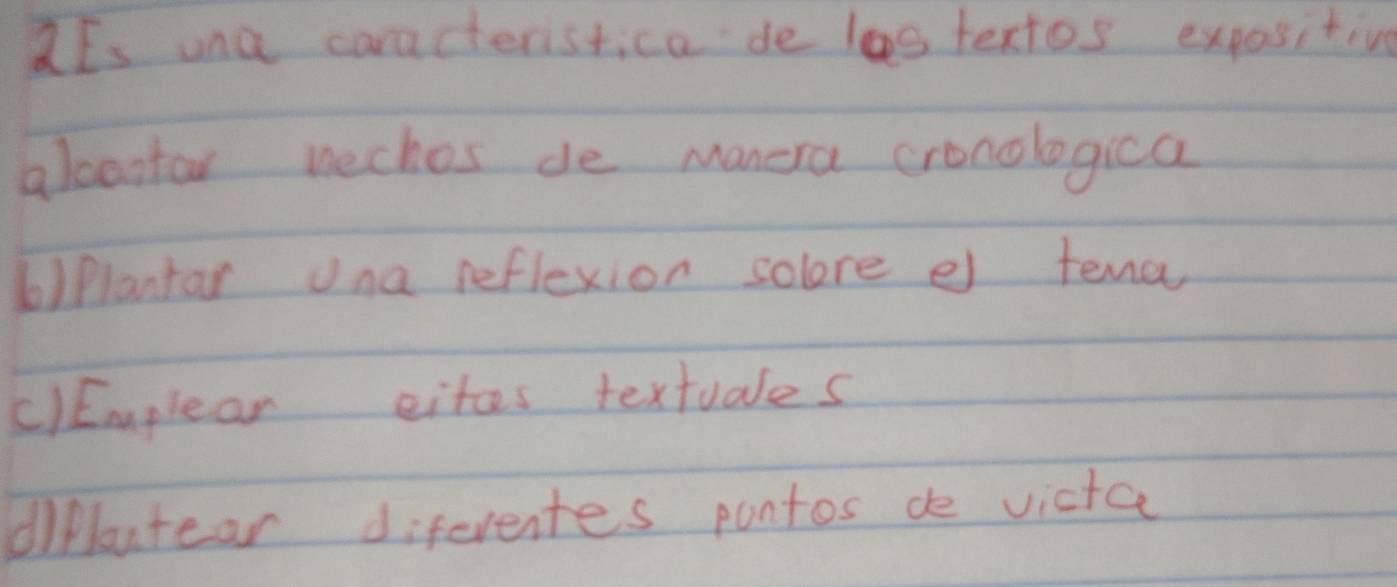 2Es una caracteristica de las textos expositivo
a)contar hechos de manera cronologica
b)Plantar una reflexion sobre el tema
c)Emplear citas textuales
d)Plantear diferentes puntos de victa